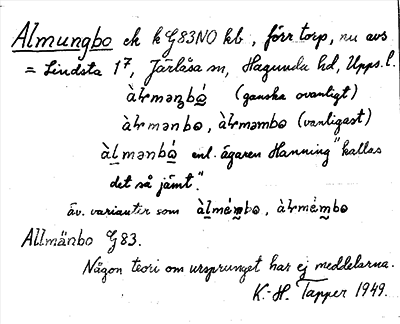 Almungbo ek k G83NO kb, förr torp, nu avs
= Lindsta 1⁷, Järlåsa sn, Hagunda hd, Upps. l.
(ganska ovanligt)
(vanligast)
enl. ägaren Hanning "kallas
det så jämt".
äv. varianter som
Allmänbo G83.
Någon teori om ursprunget har ej meddelarna.
K.-H. Tapper 1949.